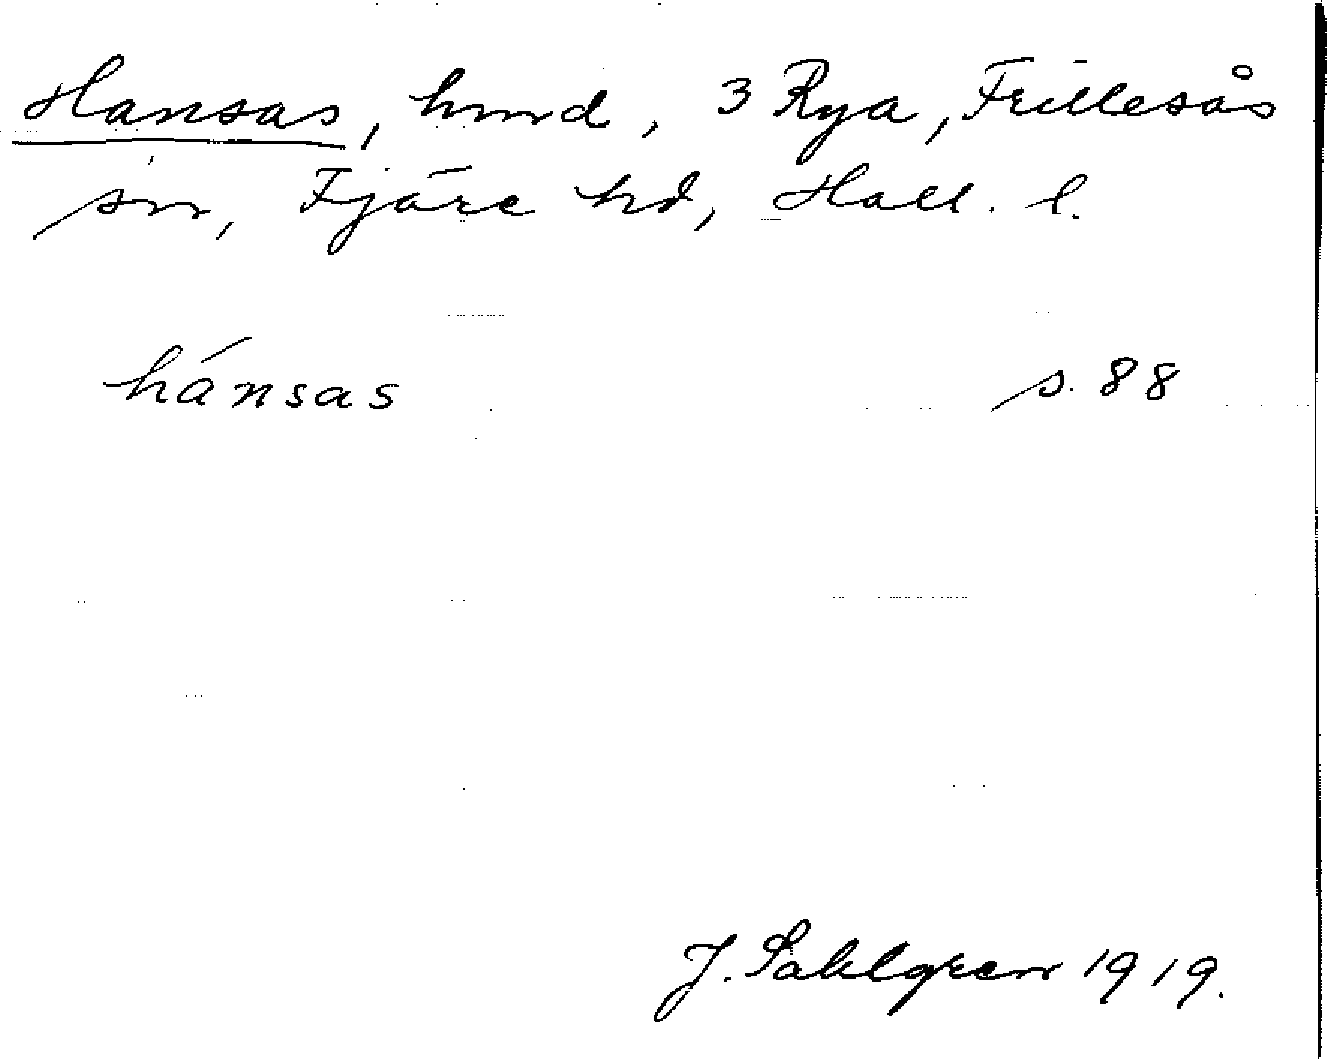 Hansas, hmd, 3 Rya, Frillesås
sn, Fjäre hd, Hall. l.
hánsas s. 88
J. Sahlgren 1919.